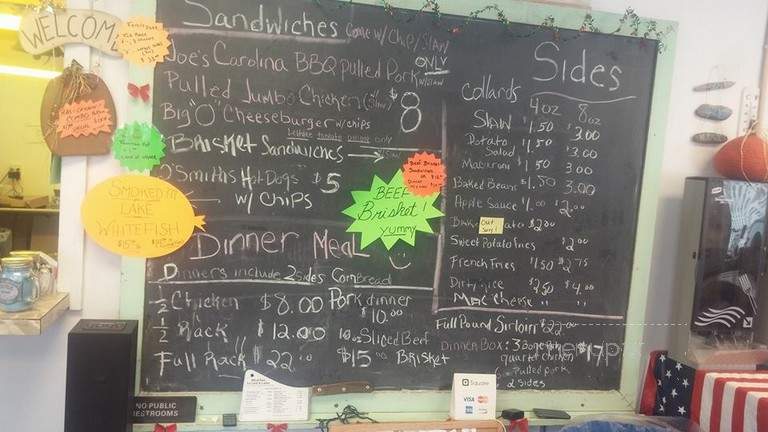 WELCOME
Sandwiches Come w/ Chip/Slaw
Joe's Carolina BBQ Pulled Pork ONLY
Pulled Jumbo Chicken (Slaw) $8
Big "O" Cheeseburger w/chips
Lettuce tomato onion only
Brisket Sandwiches
O'Smiths Hot Dogs $5
w/ Chips
BEEF
Brisket!
yummy
Beef Dinner
SMOKED
LAKE
WHITEFISH
Dinner Meal
Dinners include 2 sides Cornbread
1/2 Chicken $8.00 Pork dinner
$10.00
1/2 Rack $12.00 Sliced Beef
Full Rack $22.00 $15 Brisket
Sides
Collards 4oz 8oz
Slaw $1.50 $3.00
Potato Salad $1.50 $3.00
Macaroni $1.50 3.00
Baked Beans $1.50 3.00
Apple Sauce $1.00 $2.00
Out
Sorry!
$2.00
Sweet Potato fries $2.00
French Fries $1.50 $2.75
Dirty rice $2.50 $4.00
Mac Cheese " "
Full Pound Sirloin $22.00
Dinner Box: 3 Bone
quarter chicken
Pulled pork
2 sides
$17
NO PUBLIC
RESTROOMS
Square
VISA